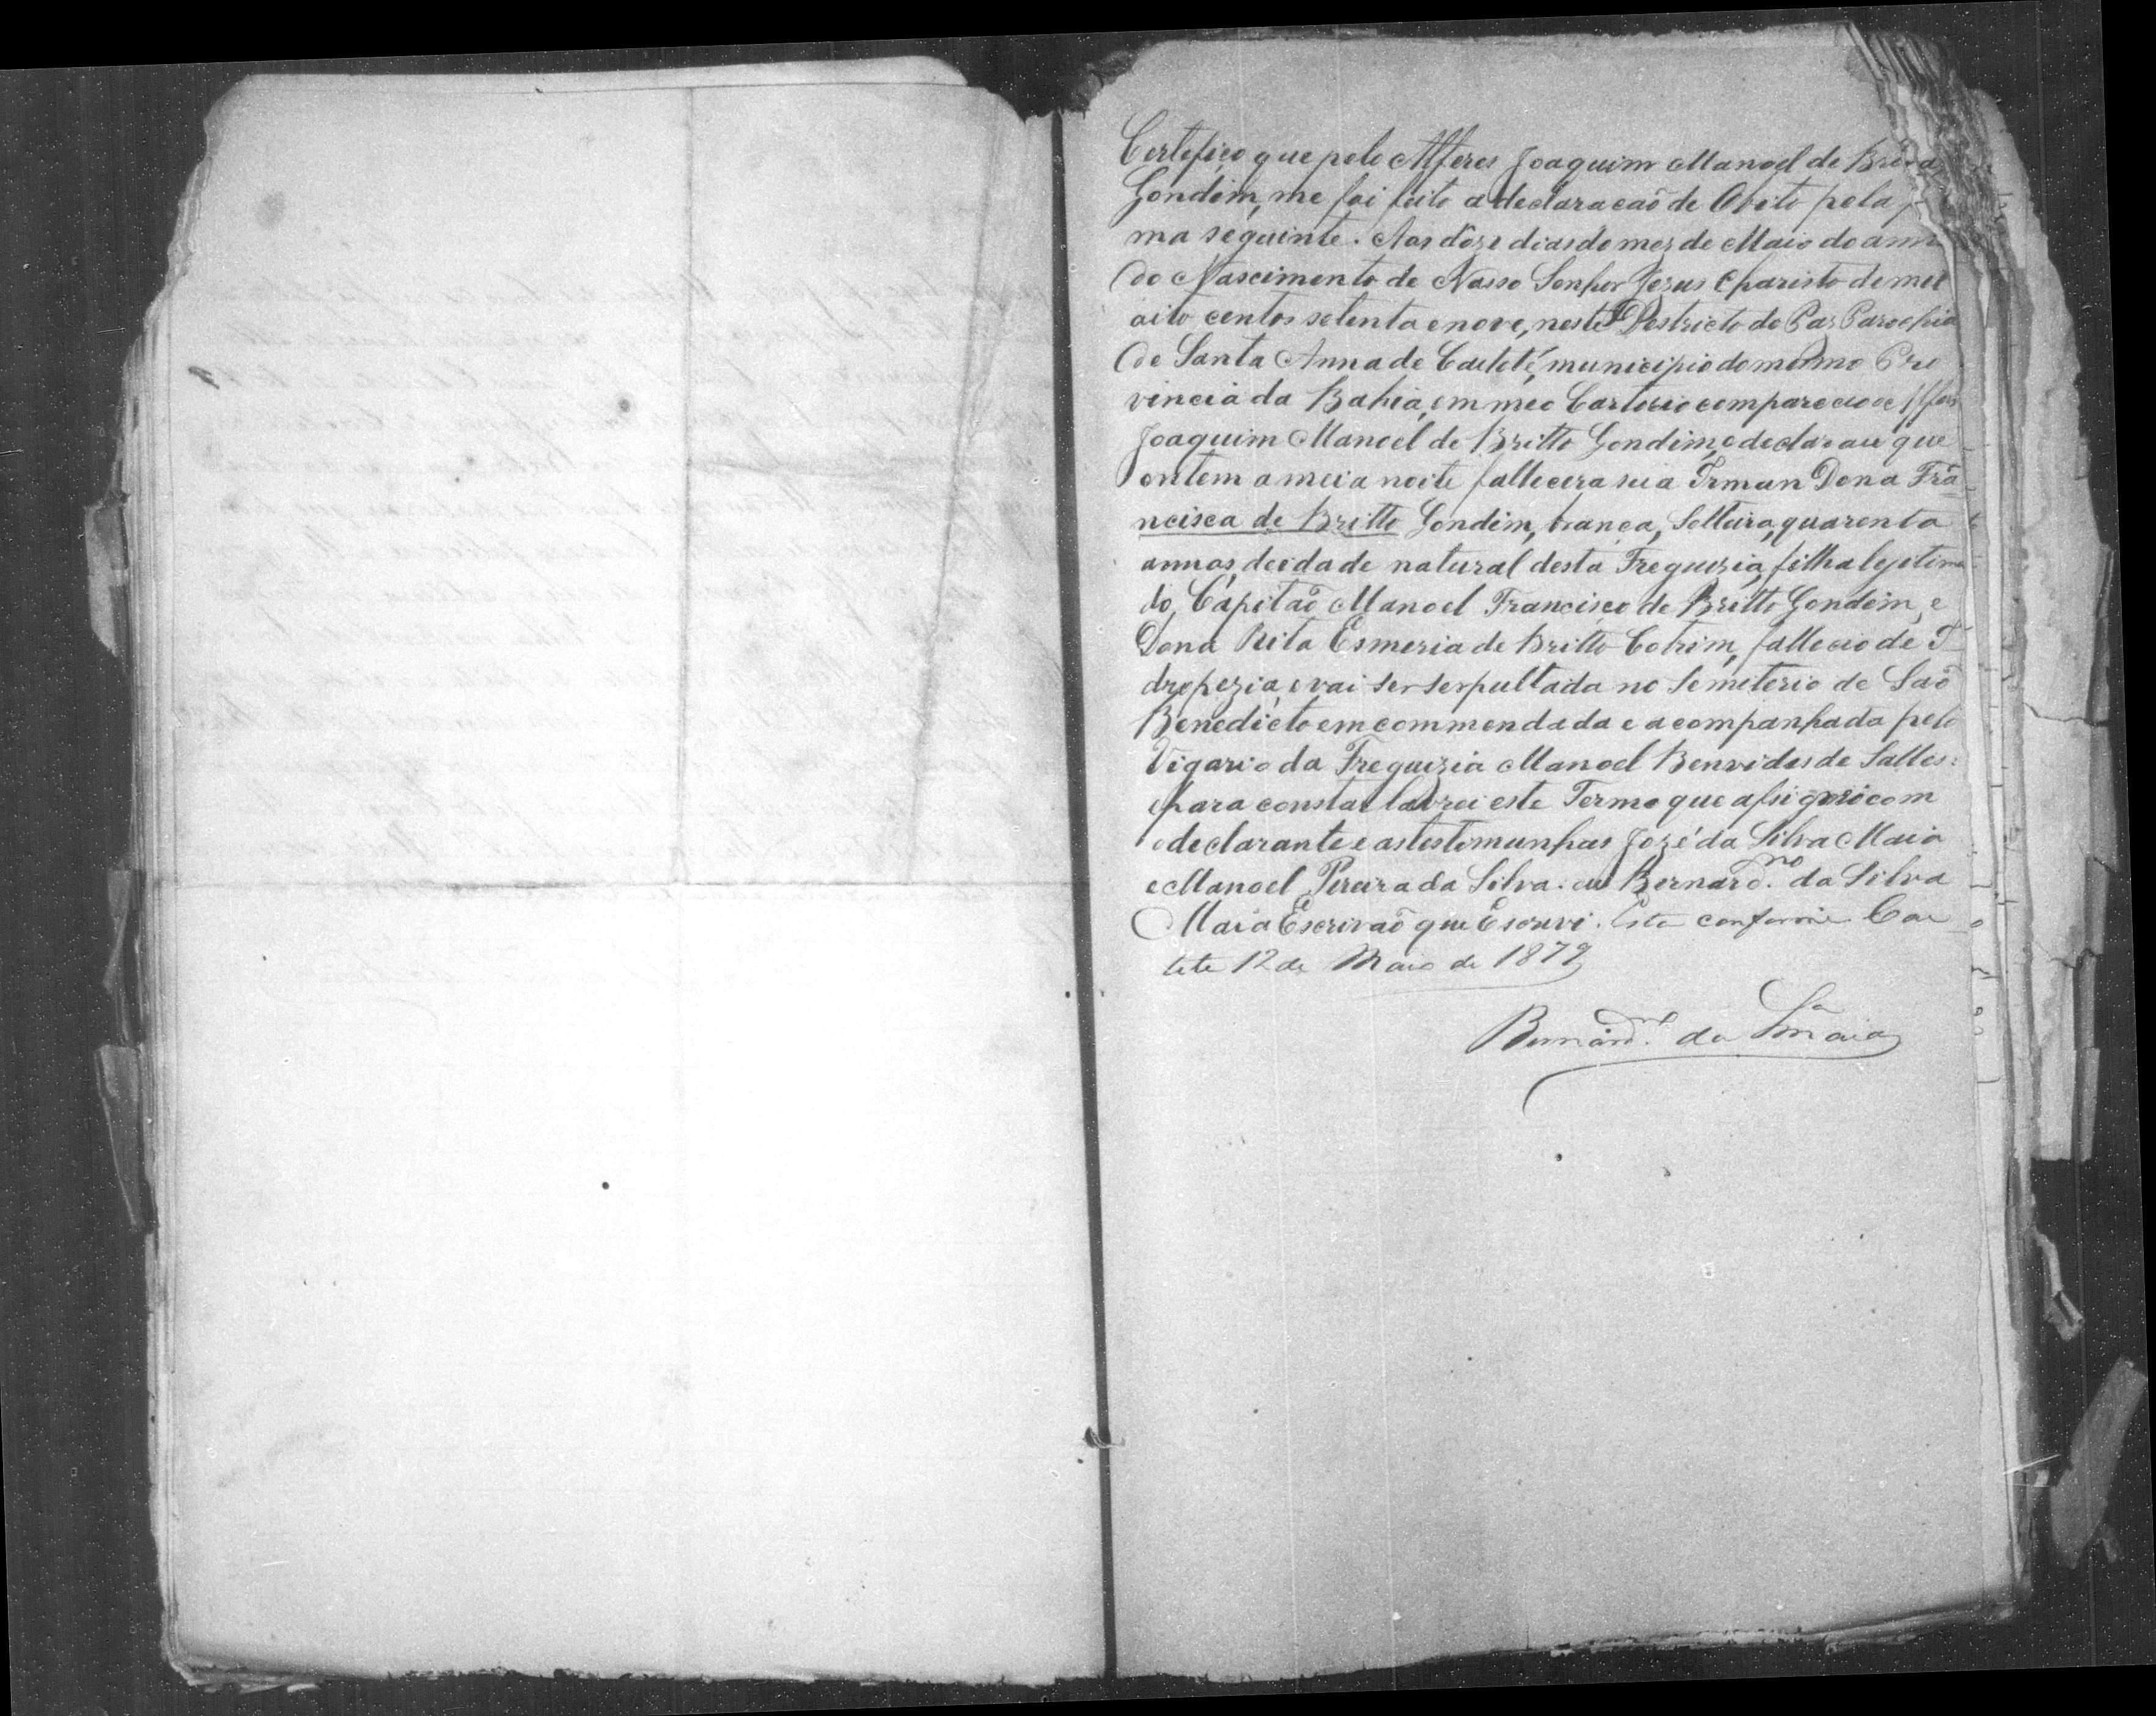 Certefico que pelo Alferes Joaquim Manoel de
Gondim, me foi feito a declaracaõ de Obito pela
ma seguinte. Aos dôze dias do mez de Maio do anno
do Nascimento de Nosso Senhor Jezus Christo de mil
oito centos setenta e nove, neste Destricto de Paz Parochia
de Santa Anna de Caeteté, municipio do mesmo Pro
vincia da Bahia, em meo Cartorio compareceo o Alfers
Joaquim Manoel de Britto Gondim, e declarau que
ontem a meia noite fallecera sua Irman Dona Frã
ncisca de Britto Gondim, branca, Solteira, quarenta
annos, de idade natural desta Freguezia, filha legitima
do, Capitaõ Manoel Francisco de Britto Gondim, e
Dona Rita Esmeria de Britto Cotrim, falleceo de
dropezia, e vai ser serpultada no Semeterio de Saõ
Benedicto emcommendada e acompanhada pelo
Vigario da Freguizia Manoel Benvides de Salles:
epara constar lavrei este Termo que assignei com
o declarante e as testimunhas Jozé da Silva Maia
e Manoel Pereira da Silva. eu Bernard.no da Silva
Maia Escrivaõ que Escruvi. Esta conforme Cae
tete 12 de Maio de 1879
Bernard.no da Sa Maia